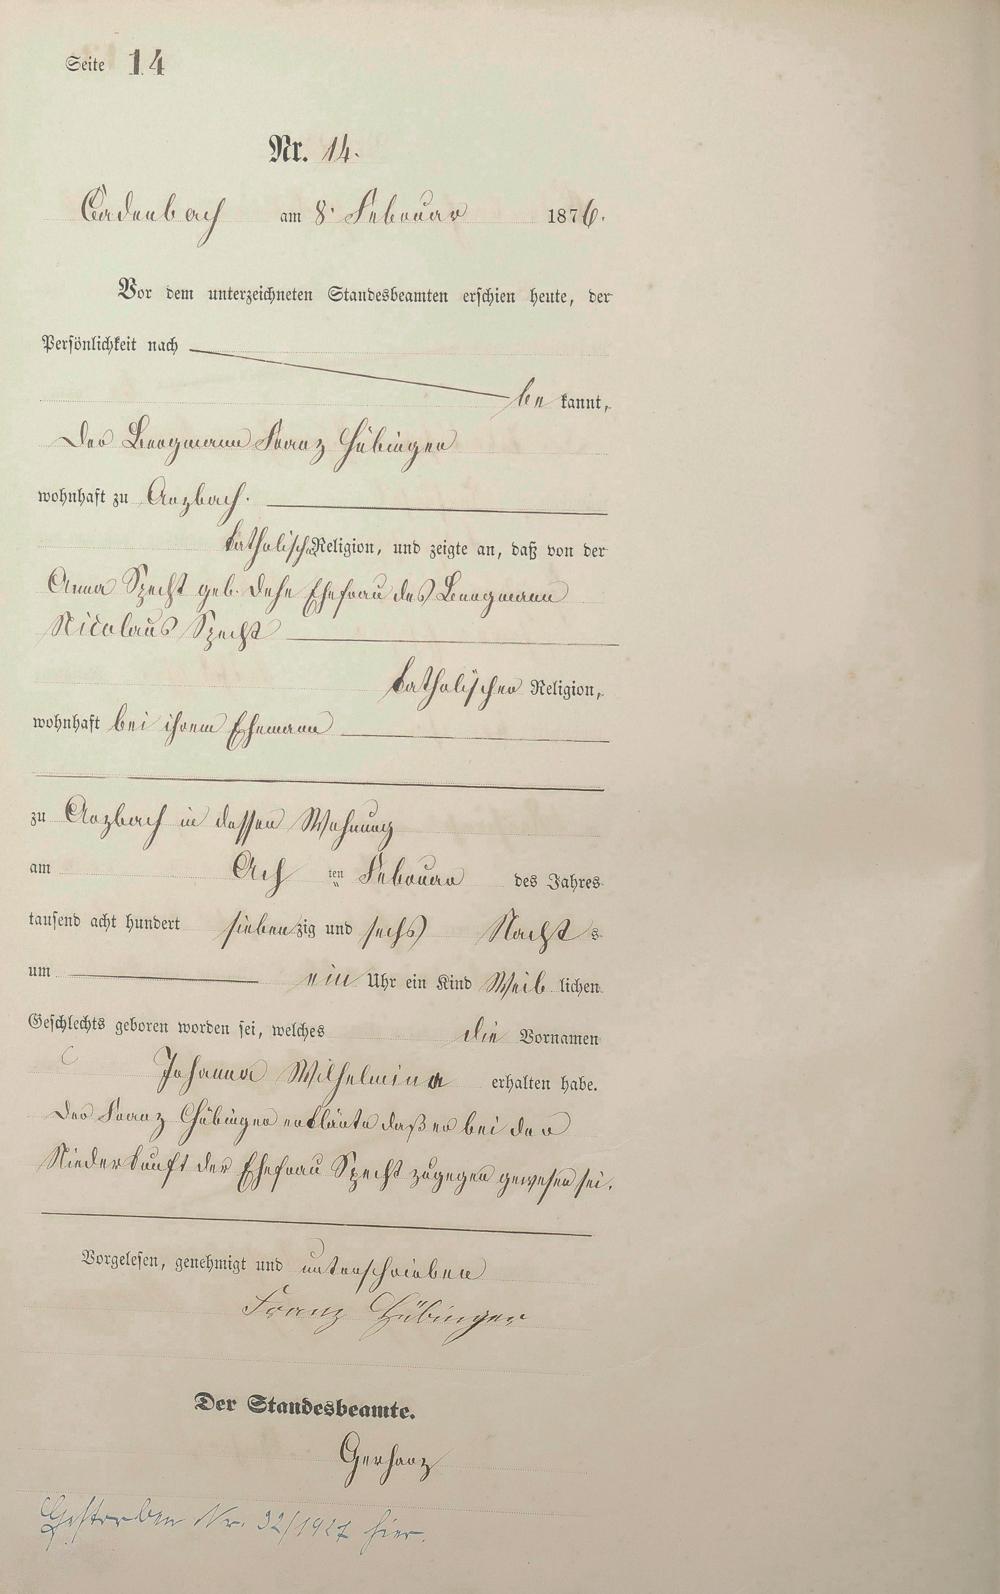 Seite 14
Nr. 14.
Cadenbach am 8. Februar 1876.
Vor dem unterzeichneten Standesbeamten erschien heute, der
Persönlichkeit nach
be kannt,
Der Bergmann Franz Hübinger
wohnhaft zu Arzbach.
katholischer Religion, und zeigte an, daß von der
Anna Specht geb. Dehe Ehefrau des Bergmann
Nicolaus Specht
katholischer Religion,
wohnhaft bei ihrem Ehemann
zu Arzbach in dessen Wohnung
am Ach ten Februar des Jahres
tausend acht hundert sieben zig und sechs Nacht s
um ein Uhr ein Kind Weib lichen
Geschlechts geboren worden sei, welches die Vornamen
Johanna Wilhelmina erhalten habe.
Der Franz Hübinger erklärte daß er bei der
Niederkunft der Ehefrau Specht zugegen gewesen sei.
Vorgelesen, genehmigt und unterschrieben
Franz Hübinger
Der Standesbeamte.
Gerharz
Gestorben Nr. 32/1927 hier.